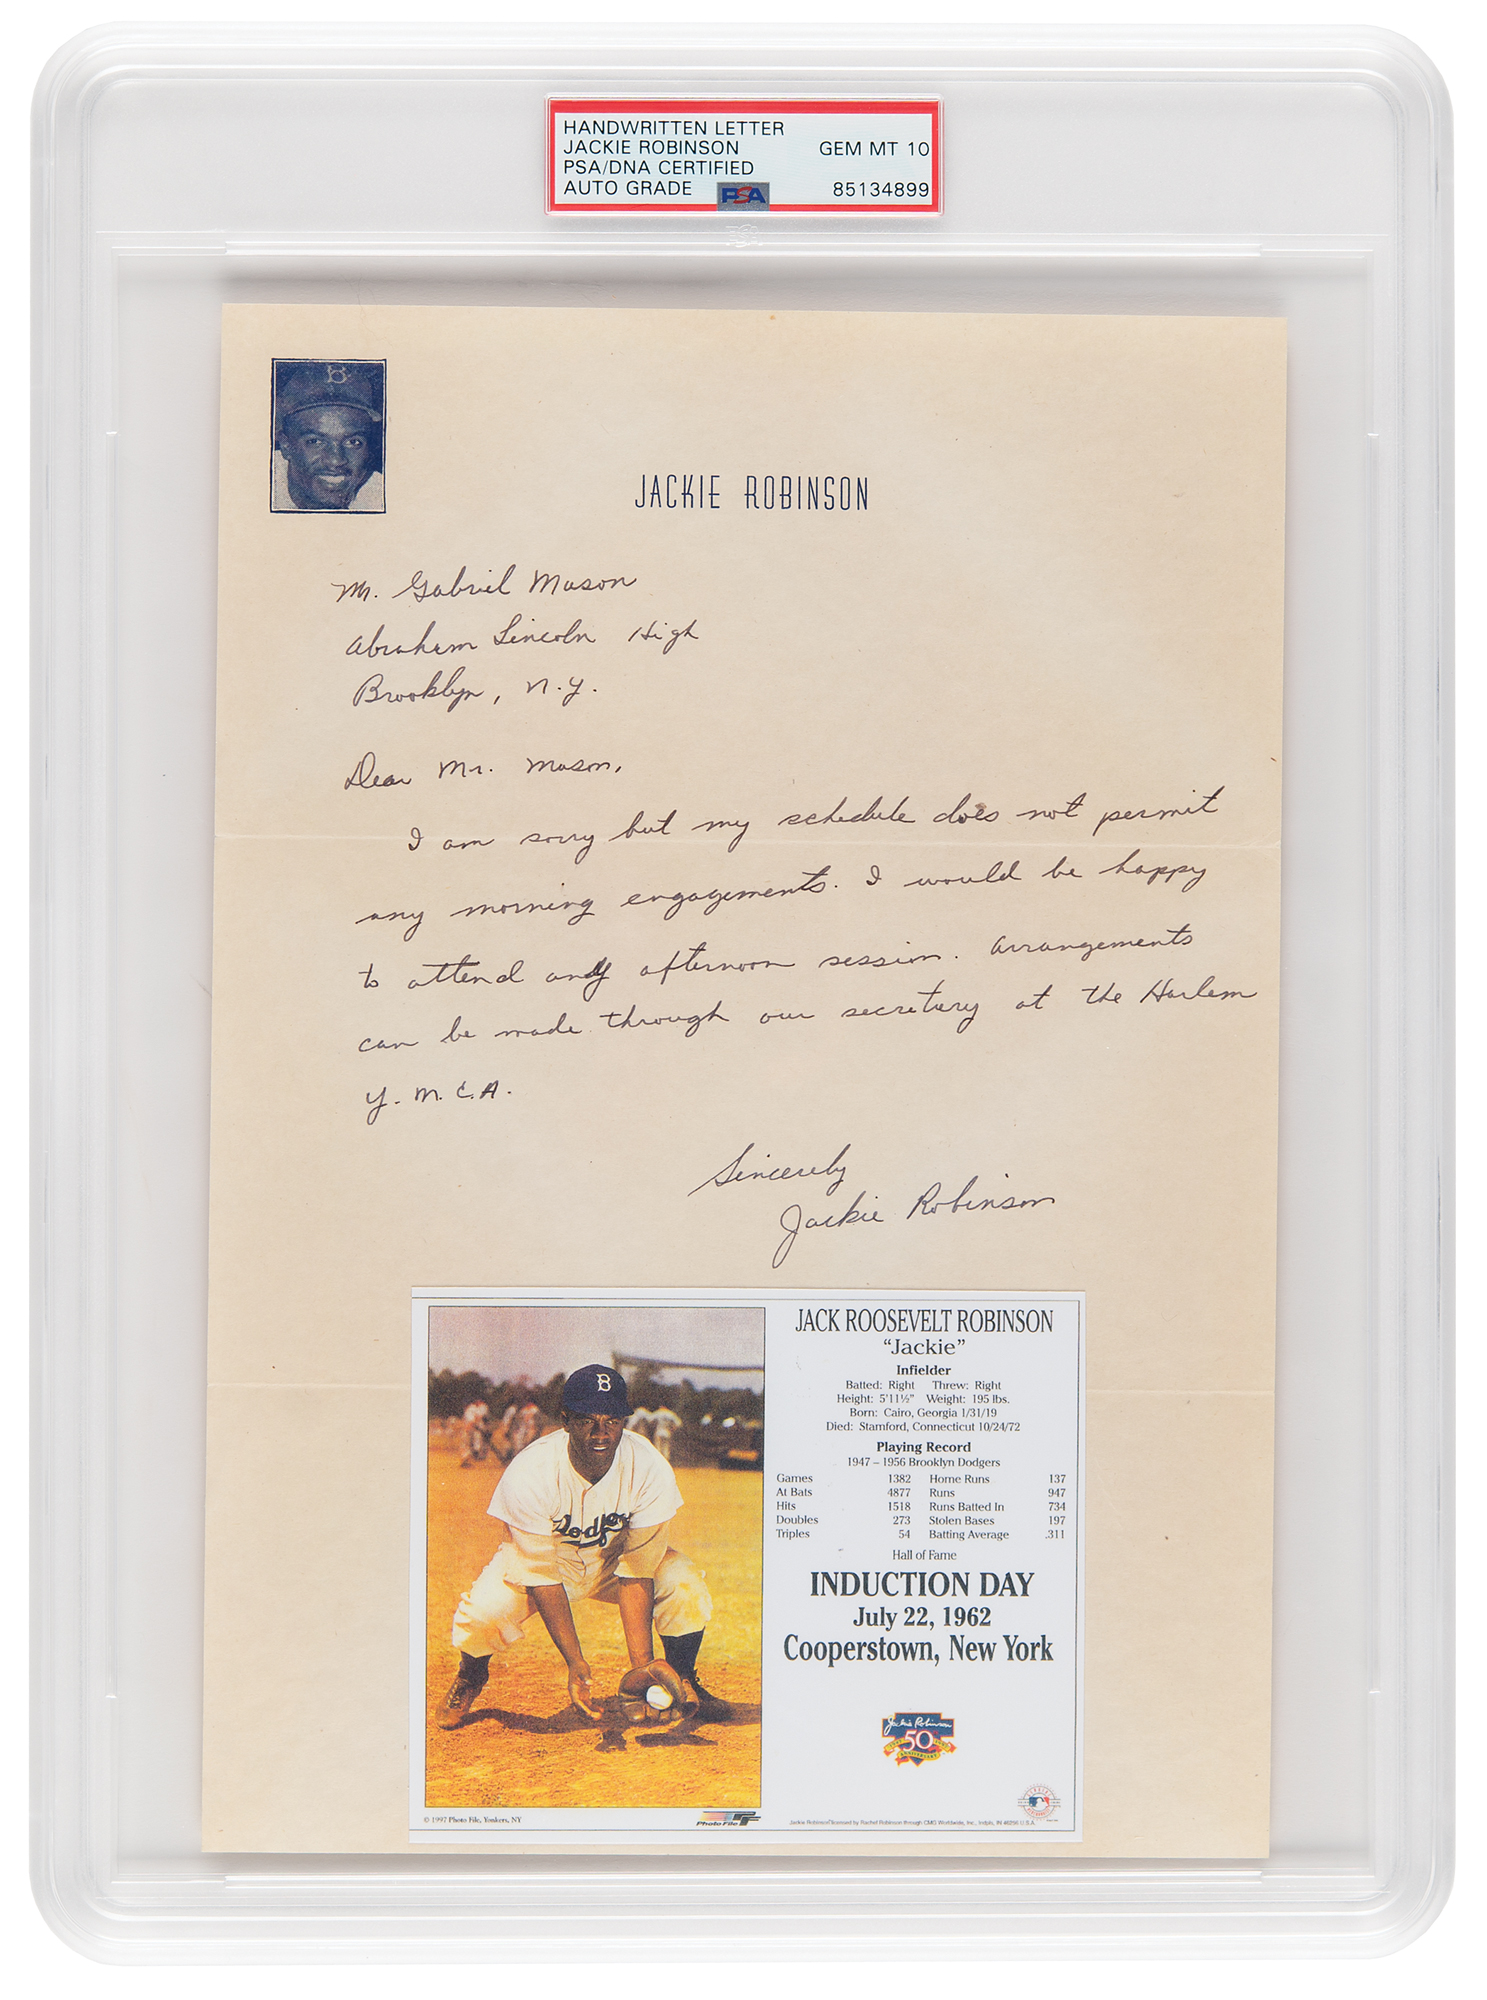 HANDWRITTEN LETTER
JACKIE ROBINSON GEM MT 10
PSA/DNA CERTIFIED
AUTO GRADE PSA 85134899
B
JACKIE ROBINSON
Mr. Gabriel Mason
Abraham Lincoln High
Brooklyn, N.Y.
Dear Mr. Mason,
I am sorry but my schedule does not permit
any morning engagements. I would be happy
to attend any afternoon session. Arrangements
can be made through our secretary at the Harlem
Y.M.C.A.
Sincerely
Jackie Robinson
B
Dodgers
JACK ROOSEVELT ROBINSON
“Jackie”
Infielder
Batted: Right Threw: Right
Height: 5'11½" Weight: 195 lbs.
Born: Cairo, Georgia 1/31/19
Died: Stamford, Connecticut 10/24/72
Playing Record
1947 – 1956 Brooklyn Dodgers
Games 1382 Home Runs 137
At Bats 4877 Runs 947
Hits 1518 Runs Batted In 734
Doubles 273 Stolen Bases 197
Triples 54 Batting Average .311
Hall of Fame
INDUCTION DAY
July 22, 1962
Cooperstown, New York
Jackie Robinson
50
ANNIVERSARY
© 1997 Photo File, Yonkers, NY
Photo File PF
Jackie Robinson licensed by Rachel Robinson through CMG Worldwide, Inc., Indpls, IN 46256 U.S.A.